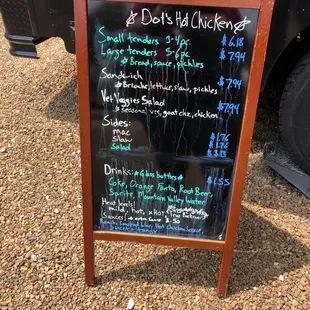 Dot's Hot Chicken
Small tenders 3-4pc $6.18
Large tenders 5-6pc $7.94
Bread, sauce, pickles
Sandwich $7.94
Brioche, lettuce, slaw, pickles
Veggies Salad $7.94
seasonal veg, goat chz, chicken
Sides:
mac $1.76
slaw $1.76
Salad
Drinks: Glass bottles $1.55
Coke, Orange Fanta, Root Beer
Sprite, Mountain Valley Water
Heat levels!
mild, hot, xHot
Sauces $.50